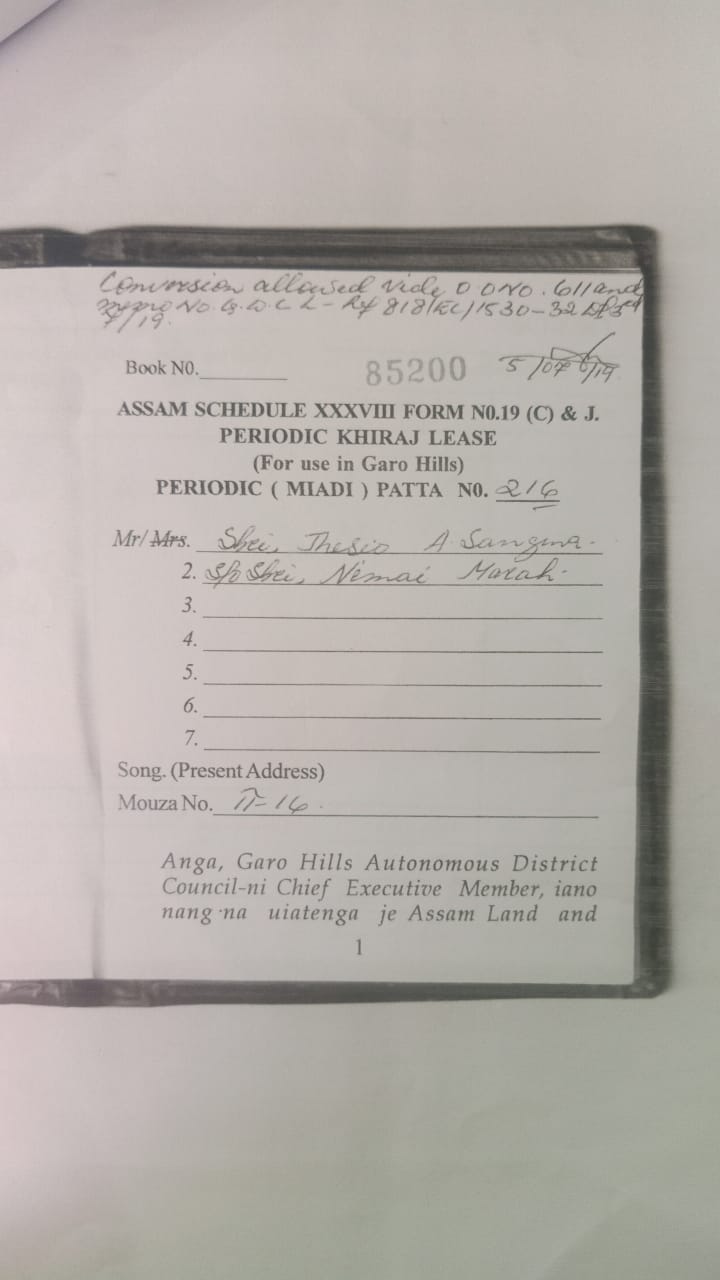 Conversion allowed vide O.O NO. 611 and
memo No. G.D.C L-Rf 818/EC/1530-32
/19.
Book N0.
85200
5/07/19
ASSAM SCHEDULE XXXVIII FORM N0.19 (C) & J.
PERIODIC KHIRAJ LEASE
(For use in Garo Hills)
PERIODIC ( MIADI ) PATTA N0. 216
Mr/Mrs. Shri, Thesio A Sangma.
2. S/o Shri, Nemai Marak.
3.
4.
5.
6.
7.
Song. (Present Address)
Mouza No. II-16.
Anga, Garo Hills Autonomous District
Council-ni Chief Executive Member, iano
nang·na uiatenga je Assam Land and
1